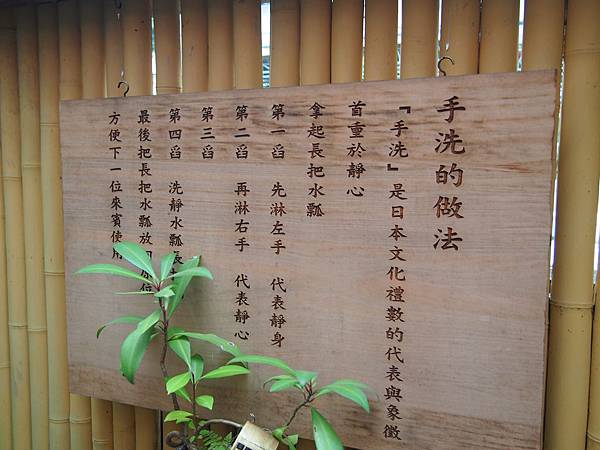 手洗的做法
『手洗』是日本文化禮數的代表與象徵
首重於靜心
拿起長把水瓢
第一舀 先淋左手 代表靜身
第二舀 再淋右手 代表靜心
第三舀
第四舀 洗靜水瓢長
最後把長把水瓢放回原位
方便下一位來賓使用